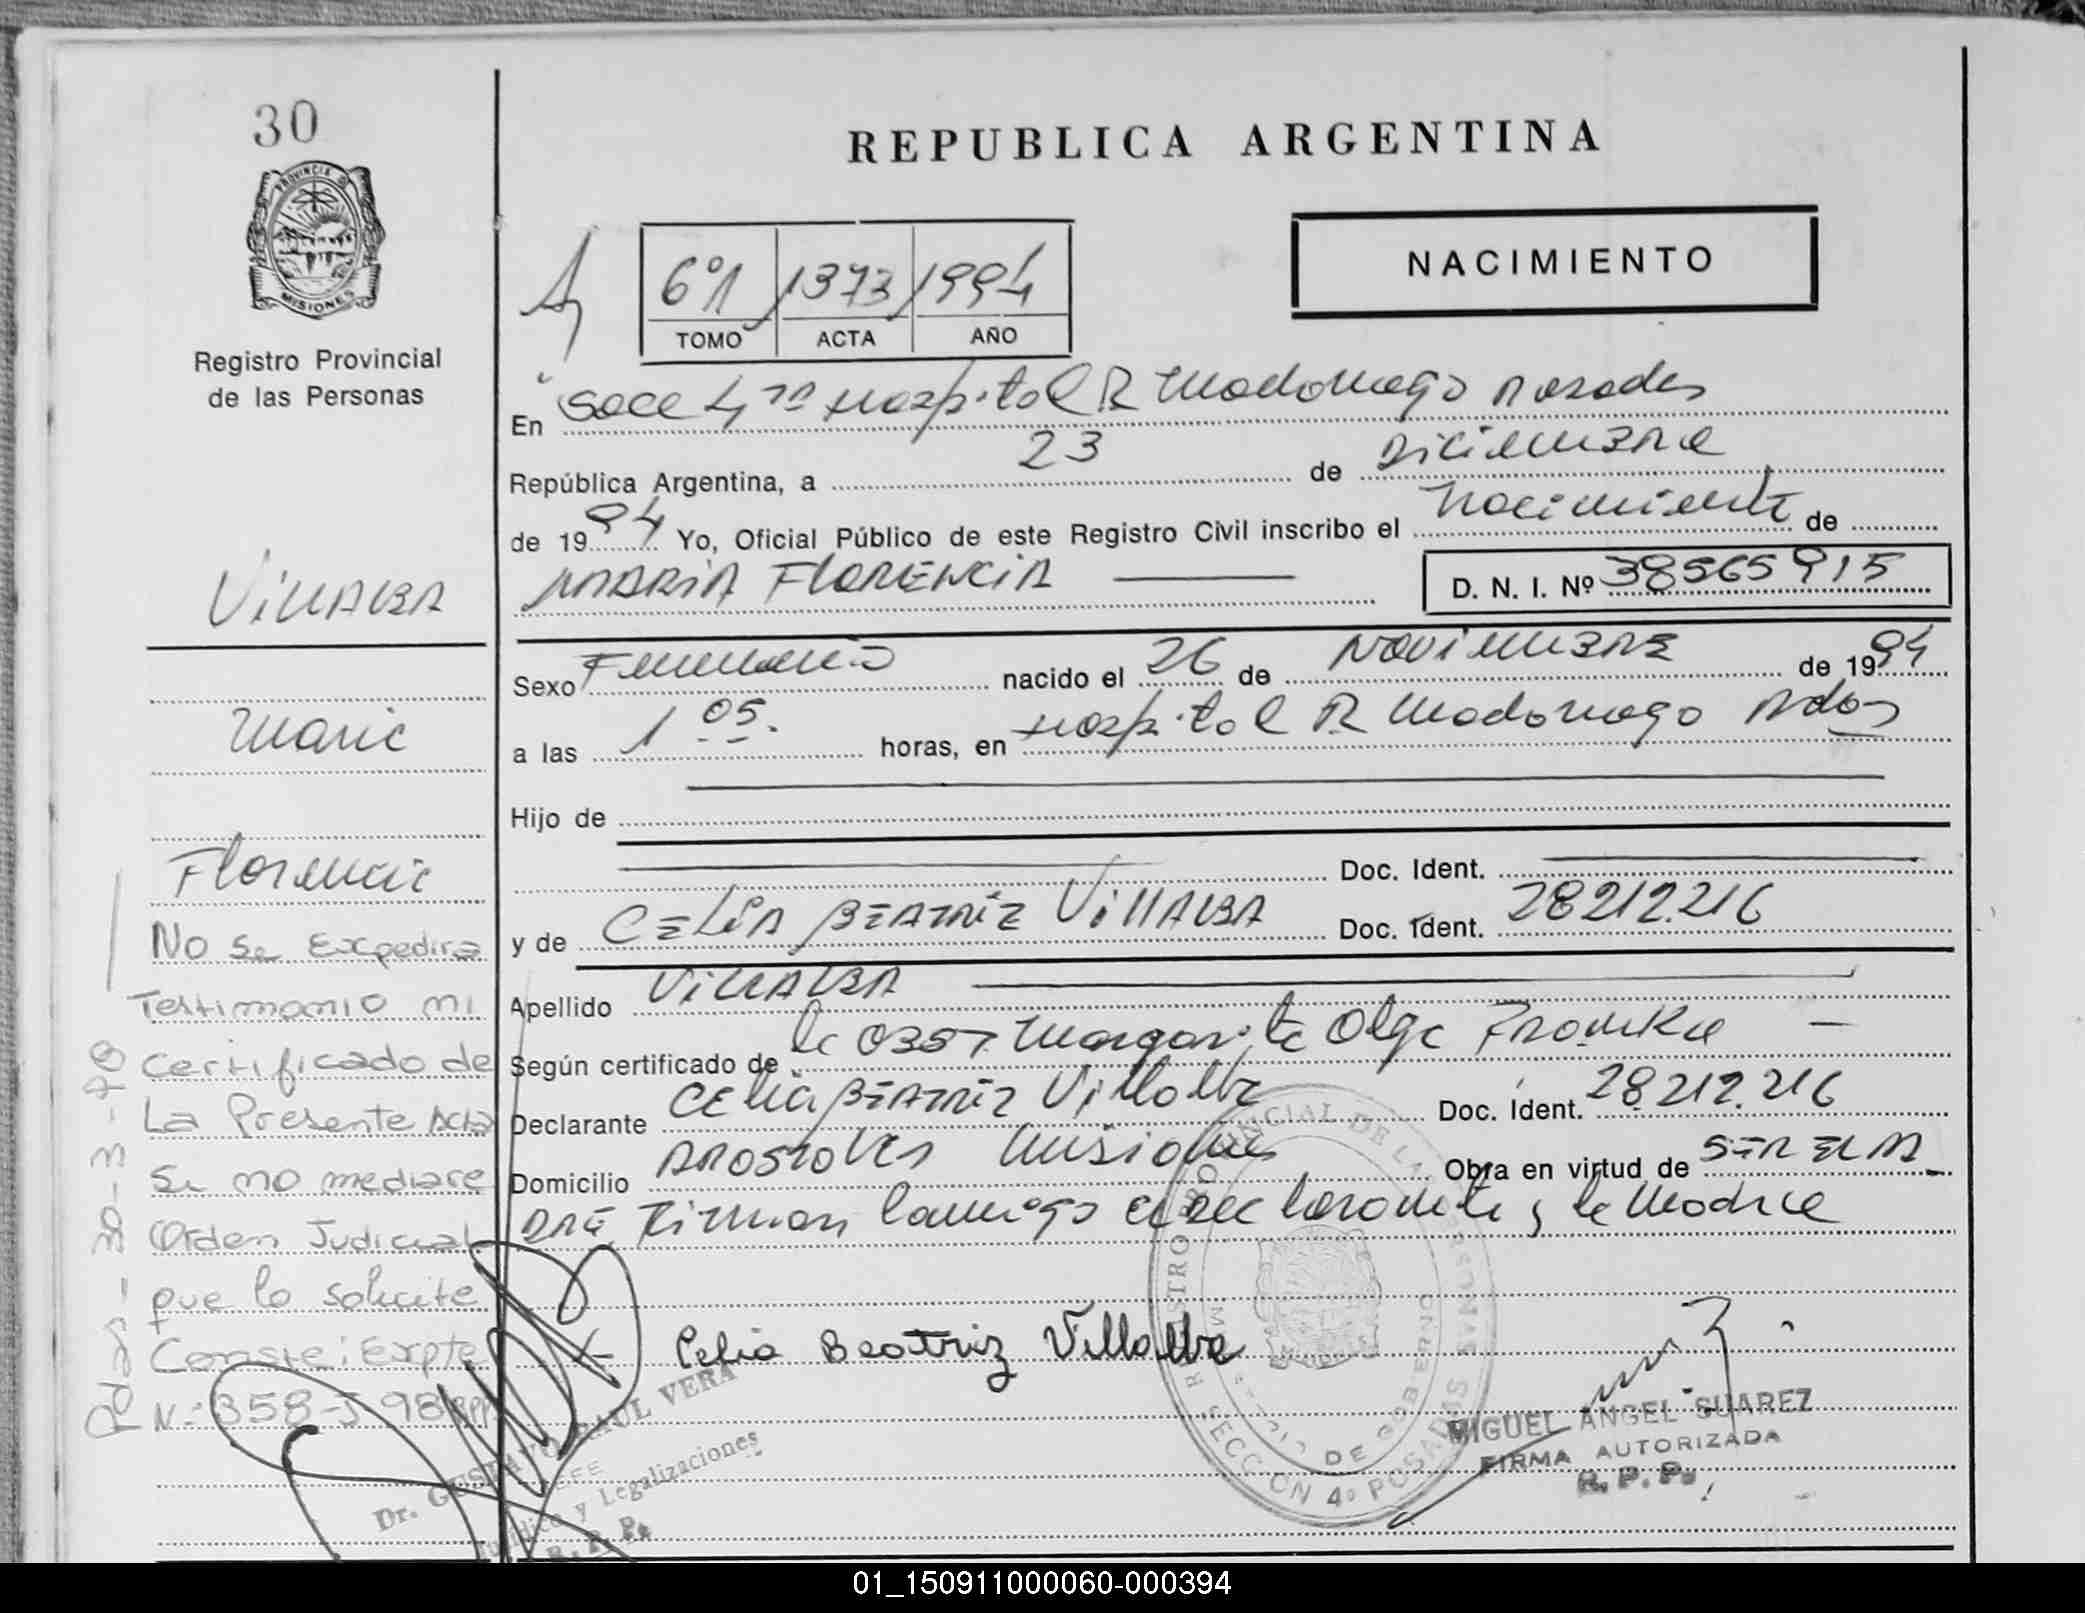 30
PROVINCIA D
MISIONES
Registro Provincial
de las Personas
REPUBLICA ARGENTINA
NACIMIENTO
6º1 1373 1994
TOMO ACTA AÑO
En Secc 4ta Hospital R Madariaga Posadas
República Argentina, a 23 de Diciembre
de 1994 Yo, Oficial Público de este Registro Civil inscribo el Nacimiento de
MARIA FLORENCIA
D. N. I. Nº 38565915
Sexo Femenino nacido el 26 de NOVIEMBRE de 1994
a las 1 05. horas, en Hospital R Madariaga Pdas
Hijo de
Doc. Ident.
y de CELIA BEATRIZ VILLALBA Doc. Ident. 28212.216
Apellido VILLALBA
Según certificado de la Obst. Margarita Olga
Declarante CELIA BEATRIZ Villalba Doc. Ident. 28.212.216
Domicilio APOSTOLES Misiones Obra en virtud de SER EL LA
Firman conmigo declarante y la Madre
Celia Beatriz Villalba
VILLALBA
Maria
Florencia
No Se Expedira
Testimonio ni
Certificado de
La Presente Acta
Si no mediare
Orden Judicial
que lo solicite
Conste: Expte
N: 358-J-98
Dr. GUSTAVO RAUL VERA
JEFE
Jurídico y Legalizaciones
R. P. P.
REGISTRO PROVINCIAL DE LAS PERSONAS
MINISTERIO DE GOBIERNO
SECCION 4º POSADAS
MIGUEL ANGEL SUAREZ
FIRMA AUTORIZADA
R. P. P.
01_150911000060-000394